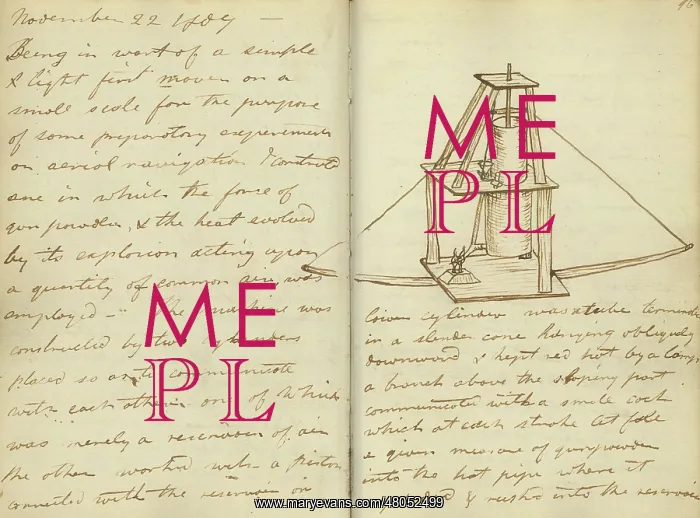 November 22 1809 —
Being in want of a simple
& light first mover on a
small scale for the purpose
of some preparatory experiments
on aerial navigation I constructed
one in which the force of
gun powder, & the heat evolved
by its explosion acting upon
a quantity of common air was
employed — The machine was
constructed by two cylenders
placed so as to communicate
with each other in one of which
was merely a reservoir of air
the other worked with a piston
connected with the reservoir on
ME
PL
46
ME
PL
lower cylinder was a tube terminated
in a slender cone hanging obliquely
downward & kept red hot by a lamp
a branch above the sloping part
communicated with a small cock
which at each stroke let fall
a given measure of gunpowder
into the hot pipe where it
& rushed into the reservoir
www.maryevans.com/48052499